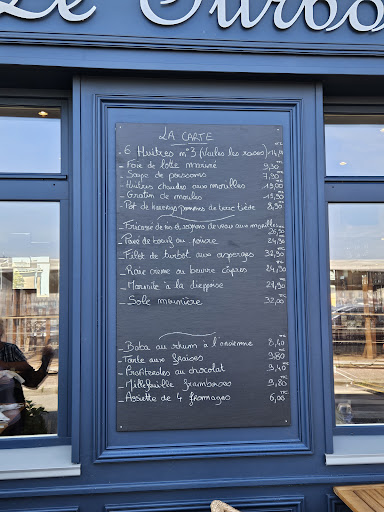 Le Turbo
LA CARTE
- 6 Huîtres n°3 (Veules les roses)
- Foie de lotte mariné 9,50
- Soupe de poissons 7,90
- Huîtres chaudes aux morilles 15,00
- Gratin de moules 15,50
- Pot de harengs pommes de terre tiède 8,50
- Fricassé de ris et rognons de veau aux morilles 26,00
- Pavé de bœuf au poivre 24,50
- Filet de turbot aux asperges 32,50
- Raie crème au beurre câpres 24,50
- Marmite à la dieppoise 29,50
- Sole meunière 32,00
- Baba au rhum à l'ancienne 8,40
- Tarte aux fraises 9,80
- Profiteroles au chocolat 9,40
- Millefeuille framboises 9,80
- Assiette de 4 fromages 6,00